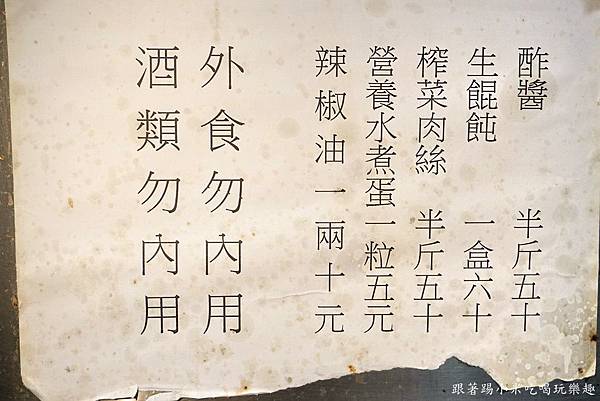 酢醬 半斤五十
生餛飩 一盒六十
榨菜肉絲 半斤五十
營養水煮蛋一粒五元
辣椒油一兩十元
外食勿內用
酒類勿內用
跟著踢小米吃喝玩樂趣